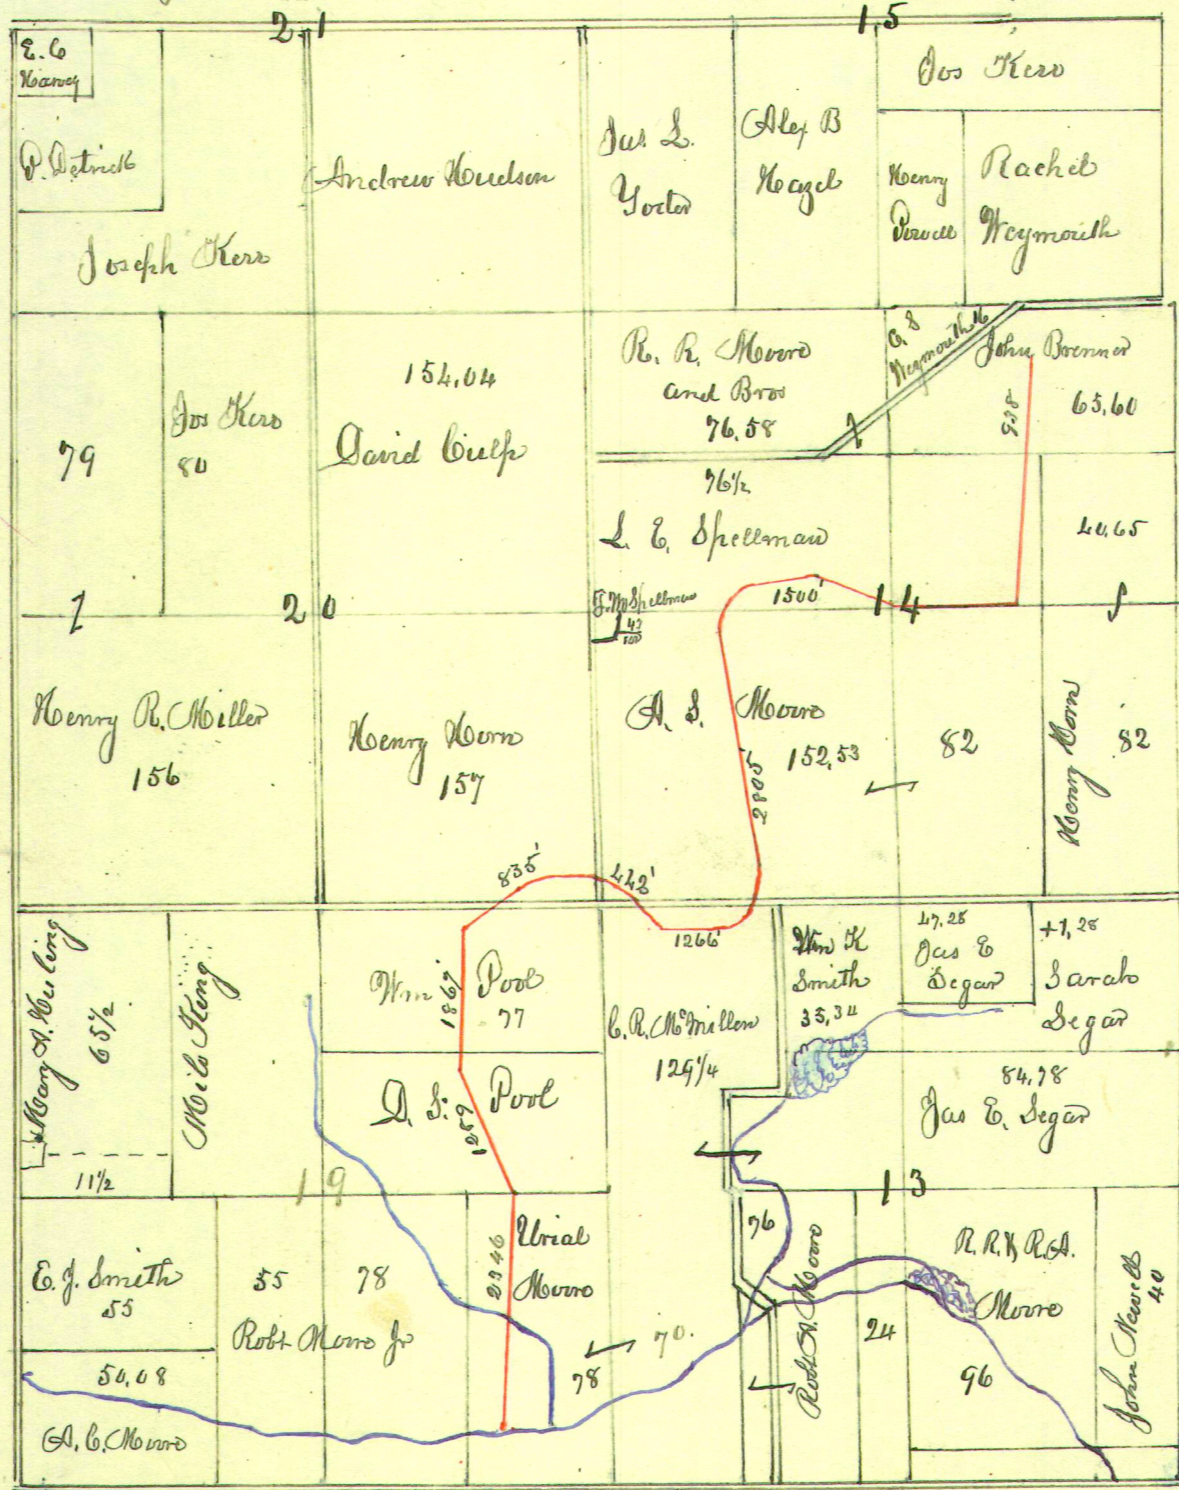 21
15
E. C
Harvey
P. Detrick
Joseph Kerr
Andrew Hudson
Jas L.
Yoctor
Alex B
Hazel
Jos Kerr
Henry
Powell
Rachel
Weymouth
79
Jos Kerr
80
154,04
David Culp
R. R. Moore
and Bros
76,58
Weymouth
John Brenner
938
65,60
76½
L. E. Spellman
40,65
20
Spellman
1500'
14
Henry R. Miller
156
Henry Horn
157
A. S. Moore
152,53
2805'
82
Henry Horn
82
835'
442'
1266'
Mary A. Huling
65½
11½
Milo King
Wm Pool
77
1867'
D. S. Pool
1259
C. R. McMillen
129¼
Wm K
Smith
35,34
47,28
Jas E
Segar
Sarah
Segar
84,78
Jas E. Segar
19
13
E. J. Smith
55
50,08
A. C. Moore
55
78
Robt Moore Jr
2346
Urial
Moore
78
70.
76
Robt A. Moore
24
R. R. & R. A.
Moore
96
John Newell
40